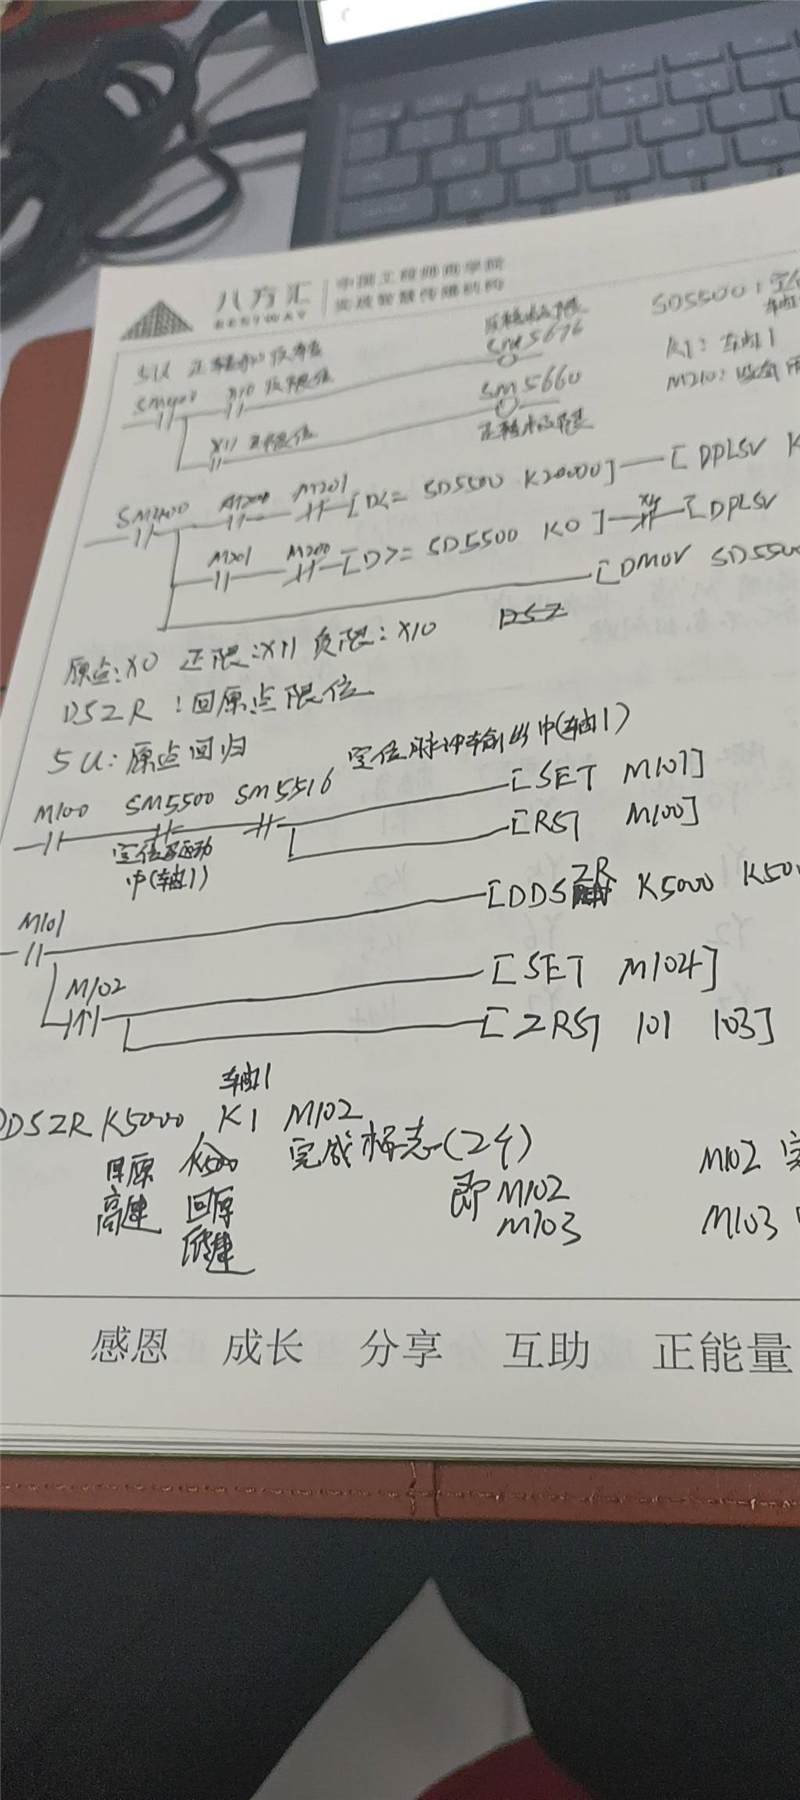 八方汇 中国工程师商学院
BESTWAY 实战智慧传播机构
5U 正转和反转
SM5676
SD5500:
SM400 X10 反限位
K1:车由1
SM5660
M210:
X11 正限位
SM400 M200 M201 [D<= SD5500 K20000] [DPLSV K
M201 M200 [D>= SD5500 K0] [DPLSV
[DMOV SD5500
原点:X0 正限:X11 负限:X10
DSZR:回原点限位
5U:原点回归 定位脉冲输出中(轴1)
M100 SM5500 SM5516 [SET M101]
定位驱动 [RST M100]
中(轴1)
[DDSZR K5000 K50
M101
[SET M104]
M102
[ZRST 101 103]
轴1
DDSZR K5000 K1 M102
回原 K500 完成标志(2个)
高速 回原
即M102
M102 完
M103
M103
感恩 成长 分享 互助 正能量